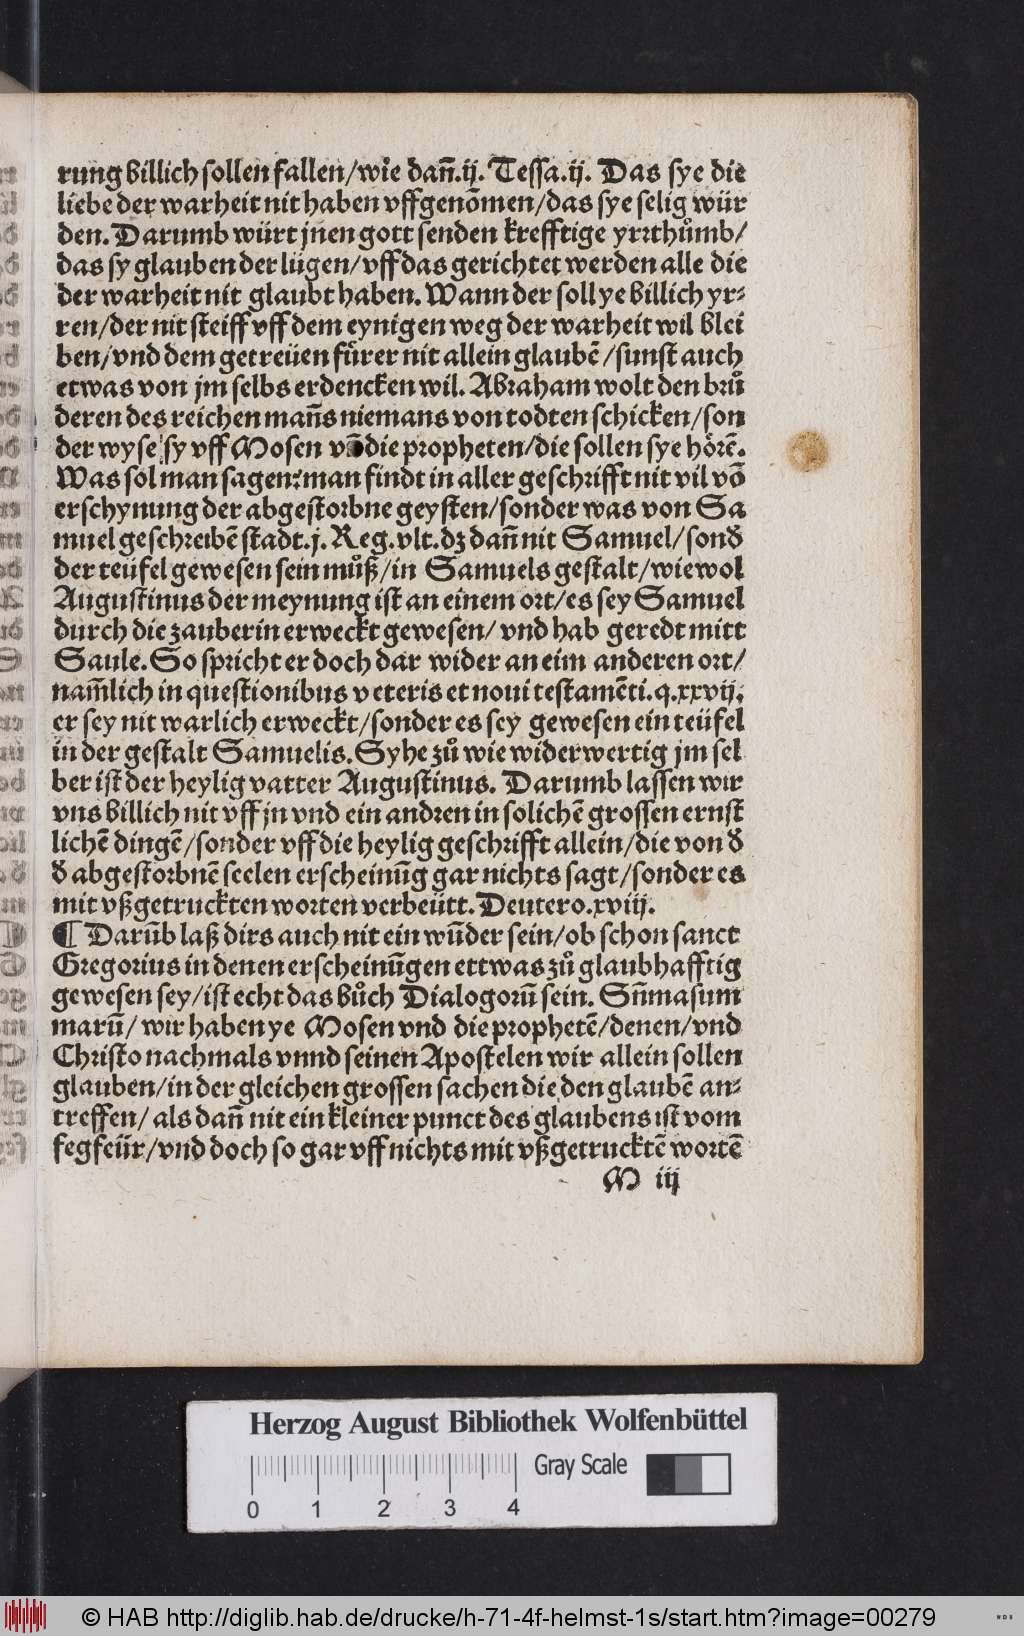 rung billich sollen fallen/wie dañ.ij. Tessa.ij. Das sye die
liebe der warheit nit haben vffgenõmen/das sye selig wür
den. Darumb würt jnen gott senden krefftige yrrthůmb/
das sy glauben der lügen/vff das gerichtet werden alle die
der warheit nit glaubt haben. Wann der soll ye billich yr⸗
ren/der nit steiff vff dem eynigen weg der warheit wil blei
ben/vnd dem getreüen fürer nit allein glaubẽ/sunst auch
etwas von jm selbs erdencken wil. Abraham wolt den brů
deren des reichen mañs niemans von todten schicken/son
der wyse sy vff Mosen vñ die propheten/die sollen sye hörẽ.
Was sol man sagen? man findt in aller geschrifft nit vil võ
erschynung der abgestorbne geysten/sonder was von Sa
muel geschreibẽ stadt.j. Reg.vlt.dz dañ nit Samuel/sonđ
der teüfel gewesen sein můß/in Samuels gestalt/wiewol
Augustinus der meynung ist an einem ort/es sey Samuel
durch die zauberin erweckt gewesen/ vnd hab geredt mitt
Saule. So spricht er doch dar wider an eim anderen ort/
nam̃lich in questionibus veteris et noui testamẽti.q.xxvij.
er sey nit warlich erweckt/sonder es sey gewesen ein teüfel
in der gestalt Samuelis. Syhe zů wie widerwertig jm sel
ber ist der heylig vatter Augustinus. Darumb lassen wir
vns billich nit vff jn vnd ein andren in solichẽ grossen ernst
lichẽ dingẽ/sonder vff die heylig geschrifft allein/die von đ
đ abgestorbnẽ seelen erscheinũg gar nichts sagt/sonder es
mit vßgetruckten worten verbeütt. Deutero.xviij.
¶ Darũb laß dirs auch nit ein wũder sein/ob schon sanct
Gregorius in denen erscheinũgen ettwas zů glaubhafftig
gewesen sey/ist echt das bůch Dialogorũ sein. Sũmasum
marũ/ wir haben ye Mosen vnd die prophetẽ/denen/vnd
Christo nachmals vnnd seinen Apostelen wir allein sollen
glauben/in der gleichen grossen sachen die den glaubẽ an⸗
treffen/ als dañ nit ein kleiner punct des glaubens ist vom
fegfeür/vnd doch so gar vff nichts mit vßgetrucktẽ wortẽ
M iij
Herzog August Bibliothek Wolfenbüttel
Gray Scale
0 1 2 3 4
© HAB http://diglib.hab.de/drucke/h-71-4f-helmst-1s/start.htm?image=00279